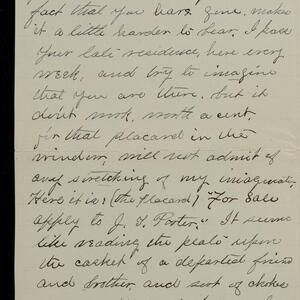 fact that you have gone, makes
it a little harder to bear. I pass
your late residence, here every
week, and try to imagine
that you are there, but it
dont work, worth a cent,
for that placard in the
window, will not admit of
any stretching of my imaginat.
Here it is: (the Placard) "For Sale
apply to J. T. Porter." It seems
like reading the plate upon
the casket of a departed friend
and brother, and sort of chokes